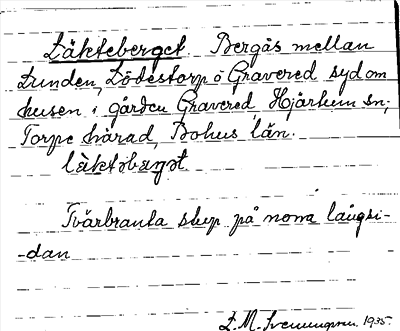 Läkteberget. Bergås mellan
Lunden, Lödestorp o Gravered syd om
husen i gården Gravered Hjärtum sn;
Torpe härad, Bohus län.
läktəbærjət
Tvärbranta stup på norra långsi-
-dan
1935.